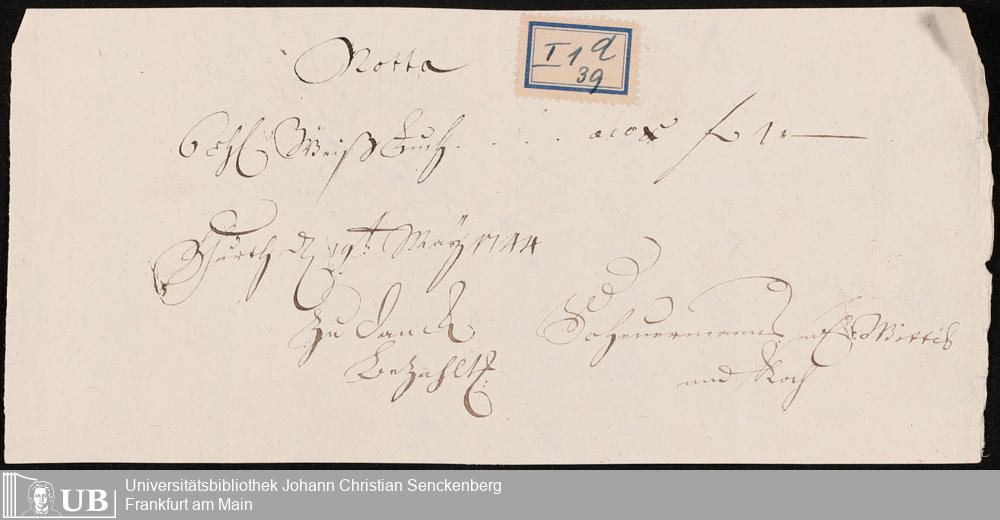 Notta
I 1 d
39
6 Ehl. Weiß Tuch . . . . a 10 x f 1 „ —
Fürth d. 19t. May 1744
Zu Danck
bezahlt
Scheuermanns Wittib
und Koch
UB Universitätsbibliothek Johann Christian Senckenberg
Frankfurt am Main